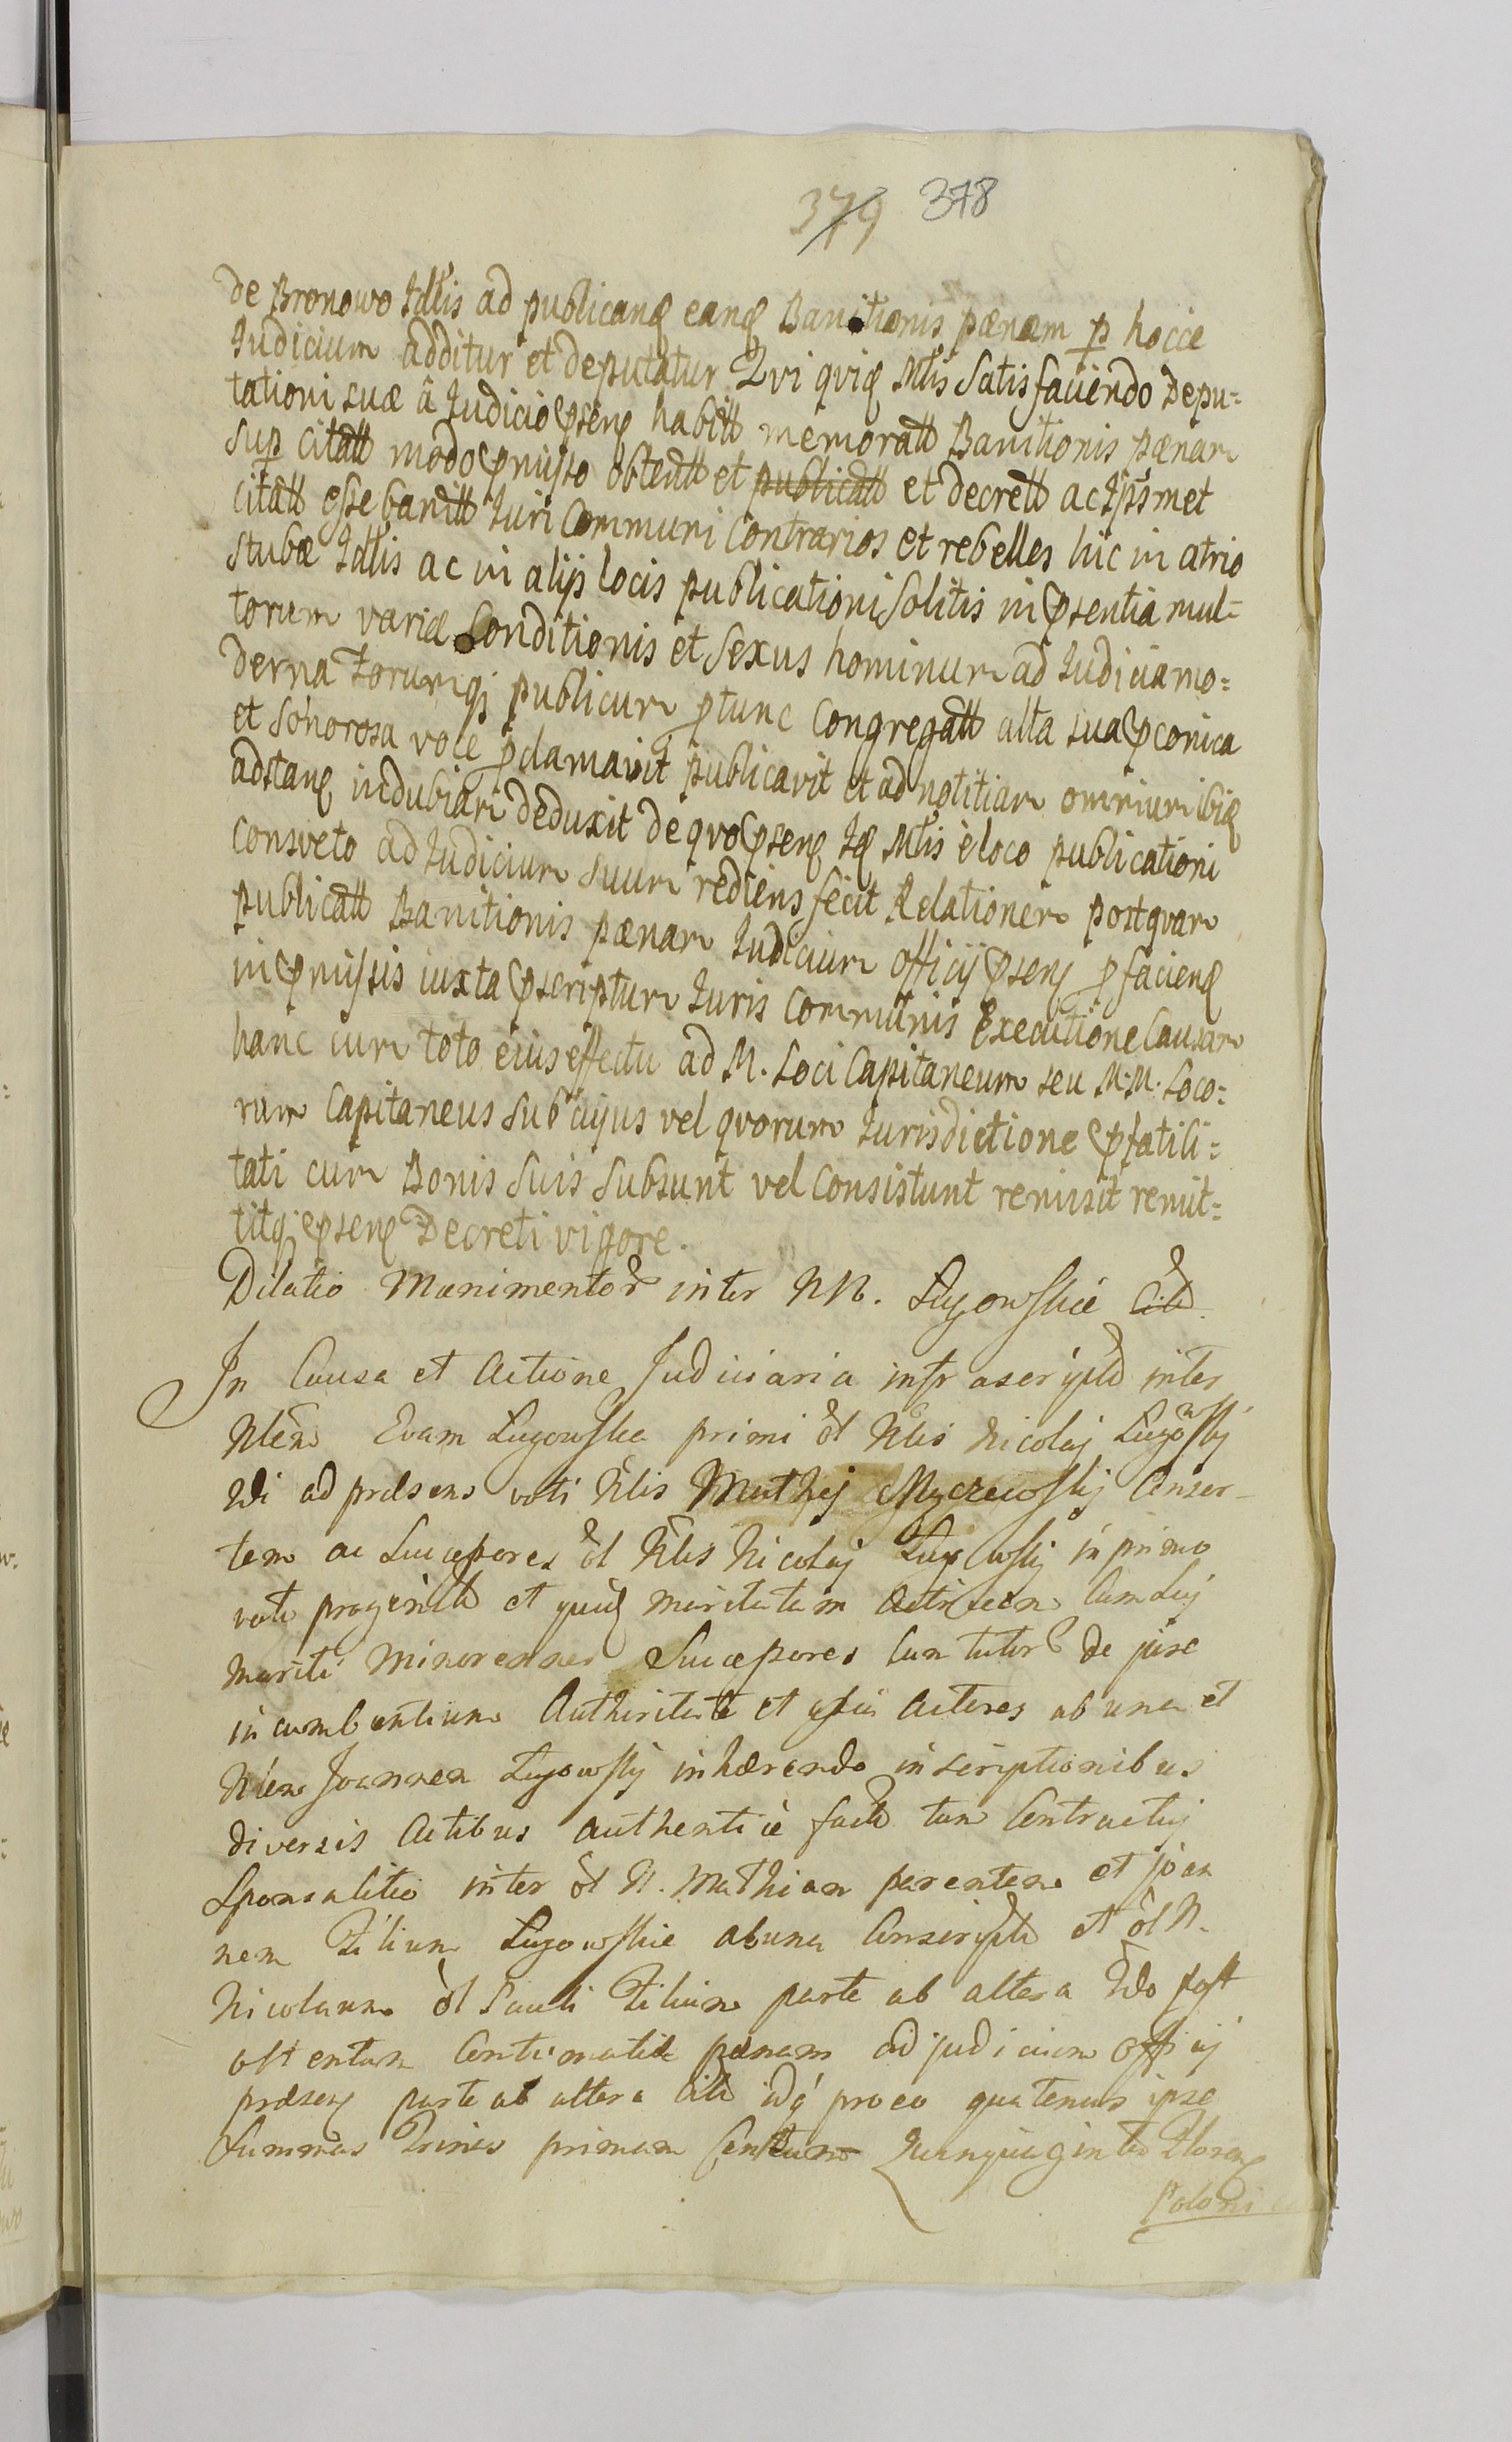 379 378
de Bronowo Idlis ad publicanḍ eanḍ Banitionis pænam p hocce
Iudicium additur et deputatur Qvi qviḍ Mtis Satisfaciendo Depu=
tationi suæ â Iudicio psenḍ habitt memoratt Banitionis pænam
sup citatt modo pmisso obtentt et publicatt et decrett ac Ipsmet
citatt esse banitt Iuri Communi Contrarios et rebelles hic in atrio
stubæ Idlis ac in alijs locis publicationi Solitis in psentia mul=
torum variæ Conditionis et Sexus hominum ad Iudicia mo=
derna Forumqȝ publicum ptunc Congregatt alta sua pconica
et Sonorosa voce pclamavit publicavit et ad notitiam omnium ibiḍ
adstanḍ indubiam deduxit de qvo psenḍ Iḍ Mtis è loco publicationi
consveto ad Iudicium suum rediens fecit Relationem postqvam
publicatt Banitionis pænam Iudicium officij psenḍ p facienḍ
in pmissis iuxta pscriptum Iuris Communis Executione Causam
hanc cum toto eius effectu ad M. Loci Capitaneum seu M.M. Loco=
rum Capitaneus Sub cujus vel qvorum Iurisdictione pfati li=
tati cum Bonis Suis Subsunt vel Consistunt remisit remit=
titqȝ psenḍ Decreti vigore.
Dilatio Munimentor inter NN. Lugowskie Citt
In Causa et Actione Judiciaria infrascriptt inter
Nlem Evam Lugowska primi ol Nlis Nicolaj Lugowskij
2di ad præsens voti Nlis Mathej Myczewskij Consor-
tem ac Successores ol Nlis Nicolaj Lugowskij in primo
voto progenitt et quiḍ maritatam Actricem cum suj
mariti Minorennes Successores cum tutor de jure
incumbentium Authoritate et assia Actores ab una et
Nlem Joannem Lugowskij inhærendo inscriptionibus
diversis Actibus authenticè factt tum Contractuj
Sponsalitio inter ol N. Mathiam parentem et Joan
nem Filium Lugowskie ab una Conscriptt et ol N.
Nicolaum ol Pauli Filium parte ab altera 2do post
ostentam Contumatiæ pænam ad judicium officij
præsenḍ parte ab altera Citt idqȝ pro eo quatenus ipse
Summas Trines primam Centum Quinquaginta Florenḍ
Poloni